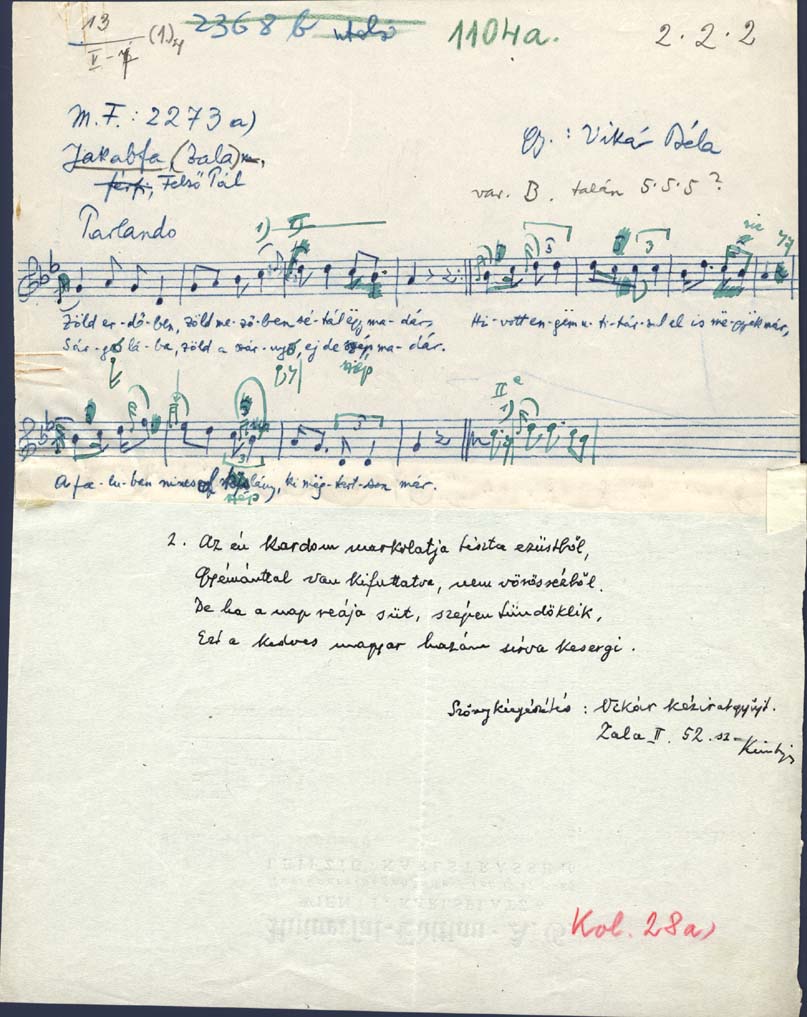 13 (1) 2368 b utolsó 1104a. 2.2.2
II-
M.F.: 2273a)
Jakabfa, (Zala)
Gy.: Vikár Béla
férfi, Felső Pál
var. B. talán 5.5.5?
Parlando
1)
3 3
Zöld er-dő-ben, zöld me-ző-ben sé-tál egy ma-dár, Hi-vott en-gem u-ti-tár-sul el is
Sár-ga lá-ba, zöld a szár-nya, ej de szép, ma-dár.
szép
II
3 3
A fa-lu-ban nincs lány, ki meg-tart-son már.
szép
2. Az én kardom markolatja tiszta ezüstből,
Gyémánttal van kifuttatva, nem vörösrézből.
De ha a nap reája süt, szépen tündöklik,
Ezt a kedves magyar hazám sírva kesergi.
Szövegkiegészítés: Vikár kéziratgyűjt.
Zala II. 52. sz.
Universal-Edition A. G.
WIEN I, KARLSPLATZ 6
LEIPZIG, KARLSTRASSE 10
Kol. 28a)